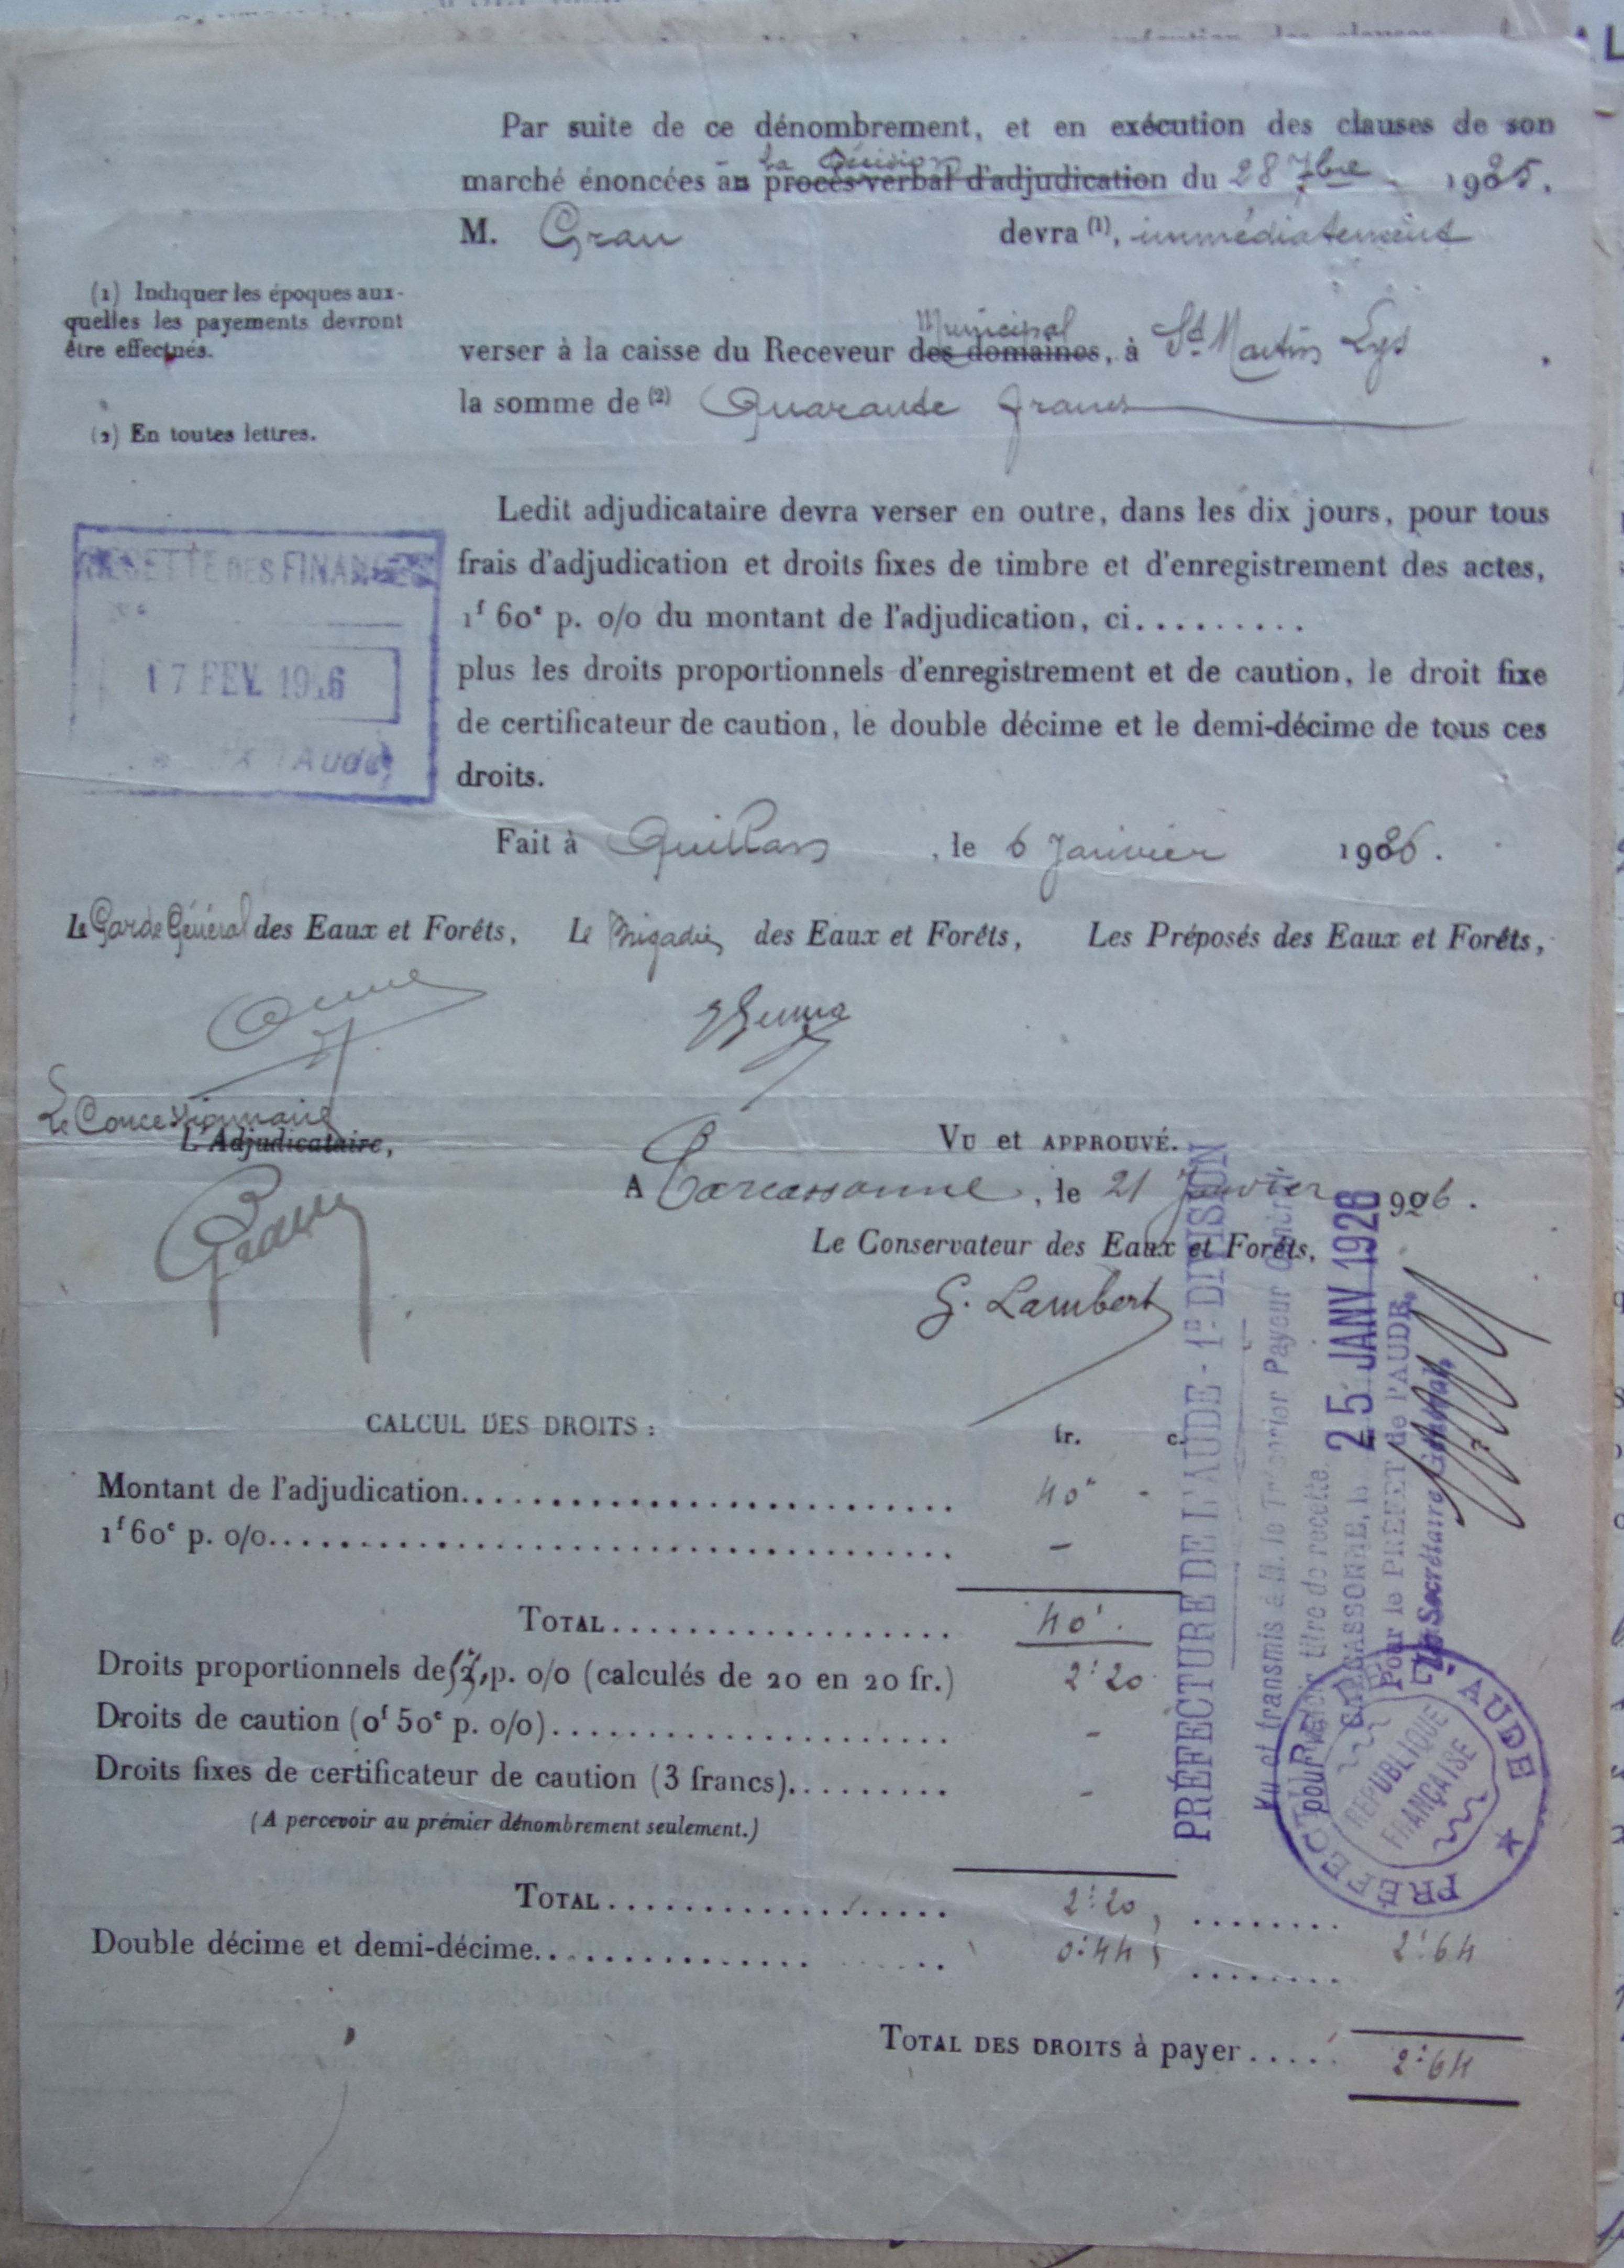 Par suite de ce dénombrement, et en exécution des clauses de son
la décision
marché énoncées au procès-verbal d'adjudication du 28 7bre 1925.
M. Grau devra (1), immédiatement
(1) Indiquer les époques aux-
quelles les payements devront
être effectués.
Municipal
verser à la caisse du Receveur des domaines, à St Martin Lys .
la somme de (2) Quarante francs
(2) En toutes lettres.
Ledit adjudicataire devra verser en outre, dans les dix jours, pour tous
frais d'adjudication et droits fixes de timbre et d'enregistrement des actes,
1f 60c p. 0/0 du montant de l'adjudication, ci.........
plus les droits proportionnels d'enregistrement et de caution, le droit fixe
de certificateur de caution, le double décime et le demi-décime de tous ces
droits.
RECETTE DES FINANCES
17 FEV. 1926
Aude
Fait à Quillan , le 6 Janvier 1926.
Le Garde Général des Eaux et Forêts, Le Brigadier des Eaux et Forêts, Les Préposés des Eaux et Forêts,
Le Concessionnaire
L'Adjudicataire,
Grau
Vu et APPROUVÉ.
A Carcassonne, le 21 Janvier 1926.
Le Conservateur des Eaux et Forêts,
G. Lambert
PRÉFECTURE DE L'AUDE - 1re DIVISION
Vu et transmis à M. le Trésorier Payeur Général
pour valoir titre de recette.
CARCASSONNE, le 25 JANV 1926
Pour le PRÉFET de l'AUDE,
Le Secrétaire Général,
PREFECTURE DE L'AUDE
RÉPUBLIQUE
FRANÇAISE
CALCUL DES DROITS :
fr. c.
Montant de l'adjudication.............................. 40" -
1f 60c p. 0/0........................................ -
TOTAL................... 40'.
Droits proportionnels de p. 0/0 (calculés de 20 en 20 fr.) 2'20
Droits de caution (0f 50c p. 0/0)........................ -
Droits fixes de certificateur de caution (3 francs).......... -
(A percevoir au premier dénombrement seulement.)
TOTAL.................... 2'20 , ........
Double décime et demi-décime..................... 0'44 ........ 2'64
TOTAL DES DROITS à payer..... 2'64